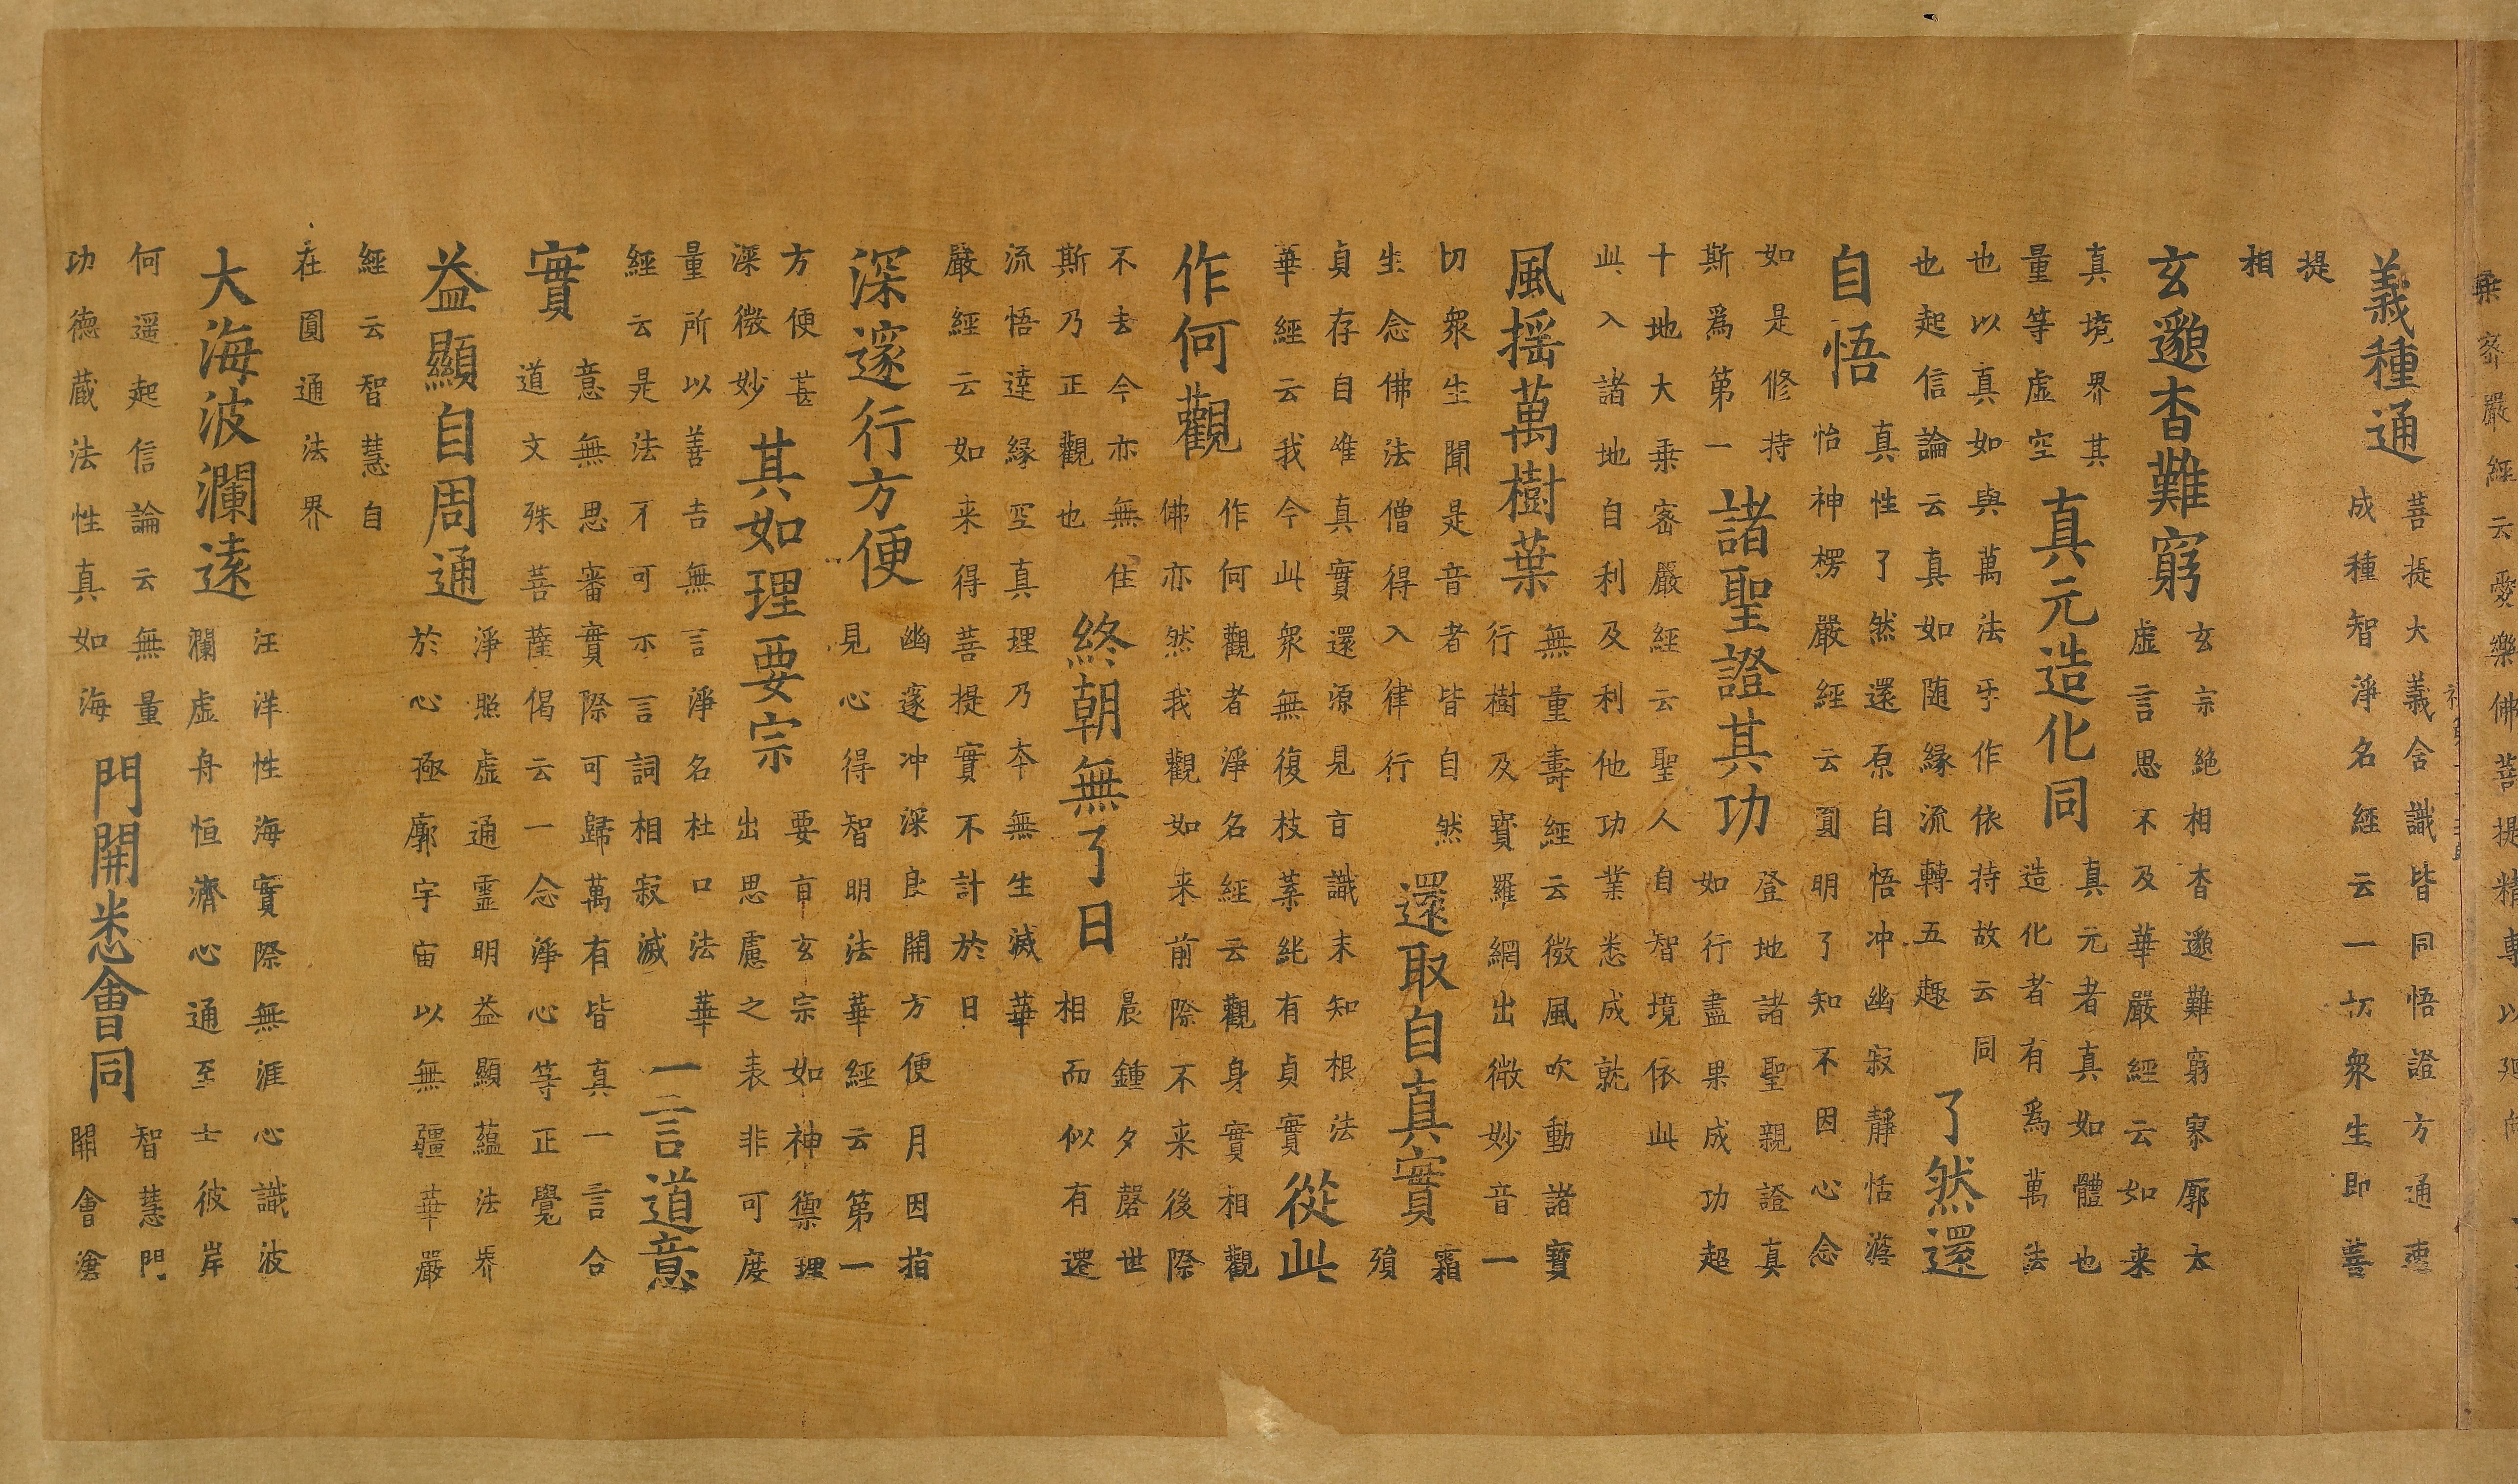 乗密嚴經云愛樂佛菩提精專以迴向
義種通
菩提大義含識皆同悟證方通速
成種智淨名經云一切衆生即菩
提
相
玄邈杳難窮
玄宗絶相杳邈難窮寥廓太
虛言思不及華嚴經云如来
真境界其
量等虛空
真元造化同
真元者真如體也
造化者有爲萬法
也以真如與萬法乎作依持故云同
也起信論云真如随縁流轉五趣
了然還
自悟
真性了然還原自悟冲幽寂靜恬澹
怡神楞嚴經云圓明了知不因心念
如是修持
斯爲第一
諸聖證其功
登地諸聖親證真
如行盡果成功超
十地大乗密嚴經云聖人自智境依此
此入諸地自利及利他功業悉成就
風揺萬樹葉
無量壽經云微風吹動諸寶
行樹及寳羅網出微妙音一
切衆生聞是音者皆自然
生念佛法僧得入律行
還取自真實
霜
殞
貞存自唯真實還源見旨識末知根法
華經云我今此衆無復枝葉純有貞實
從此
作何觀
作何觀者淨名經云觀身實相觀
佛亦然我觀如来前際不来後際
不去今亦無住
斯乃正觀也
終朝無了日
晨鍾夕磬世
相而似有遷
流悟達縁空真理乃本無生滅華
嚴經云如来得菩提實不計於日
深邃行方便
幽邃冲深良開方便月因指
見心得智明法華經云第一
方便甚
深微妙
其如理要宗
要旨玄宗如神禦理
出思慮之表非可度
量所以善吉無言淨名杜口法華
經云是法不可示言詞相寂滅
一言道意
實
意無思審實際可歸萬有皆真一言合
道文殊菩薩偈云一念淨心等正覺
益顯自周通
淨照虛通靈明益顯蘊法界
於心極廓宇宙以無疆華嚴
經云智慧自
在圓通法界
大海波瀾逺
汪洋性海實際無涯心識波
瀾虛舟恒濟心通至士彼岸
何遥起信論云無量
功德蔵法性真如海
門開悉會同
智慧門
開會滄